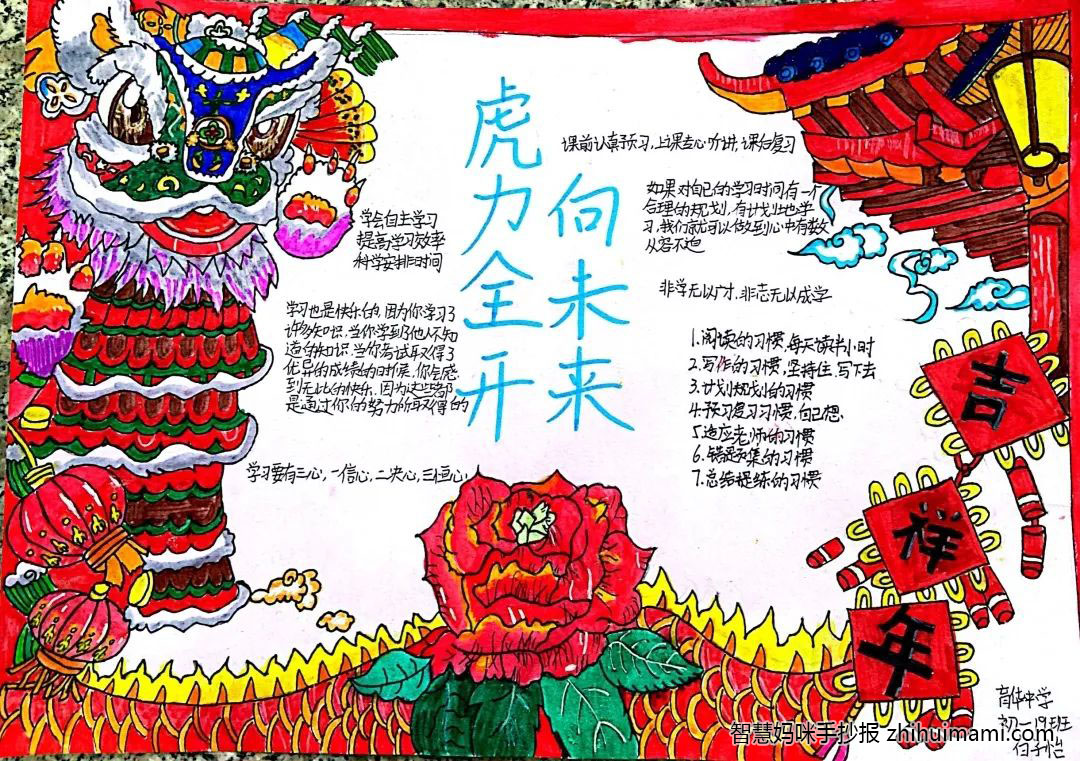 虎力全开
向未来
课前认真预习,上课专心听讲,课后复习
学会自主学习
提高学习效率
科学安排时间
如果对自己的学习时间有一个
合理的规划,有计划地学
习,我们就可以做到心中有数
从容不迫
非学无以广才,非志无以成学
学习也是快乐的,因为你学习了
许多知识.当你学到了他人不知
道的知识.当你考试取得了
优异的成绩的时候,你会感
到无比的快乐.因为这些都
是通过你的努力所取得的
学习要有三心,一信心,二决心,三恒心,
1.阅读的习惯,每天读半小时
2.写作的习惯,坚持住,写下去
3.计划规划的习惯
4.预习复习习惯,自己想.
5.适应老师的习惯
6.错题集的习惯
7.总结提练的习惯
吉
祥
年
育伟中学
初一19班
白子怡
智慧妈咪手抄报 zhihuimami.com